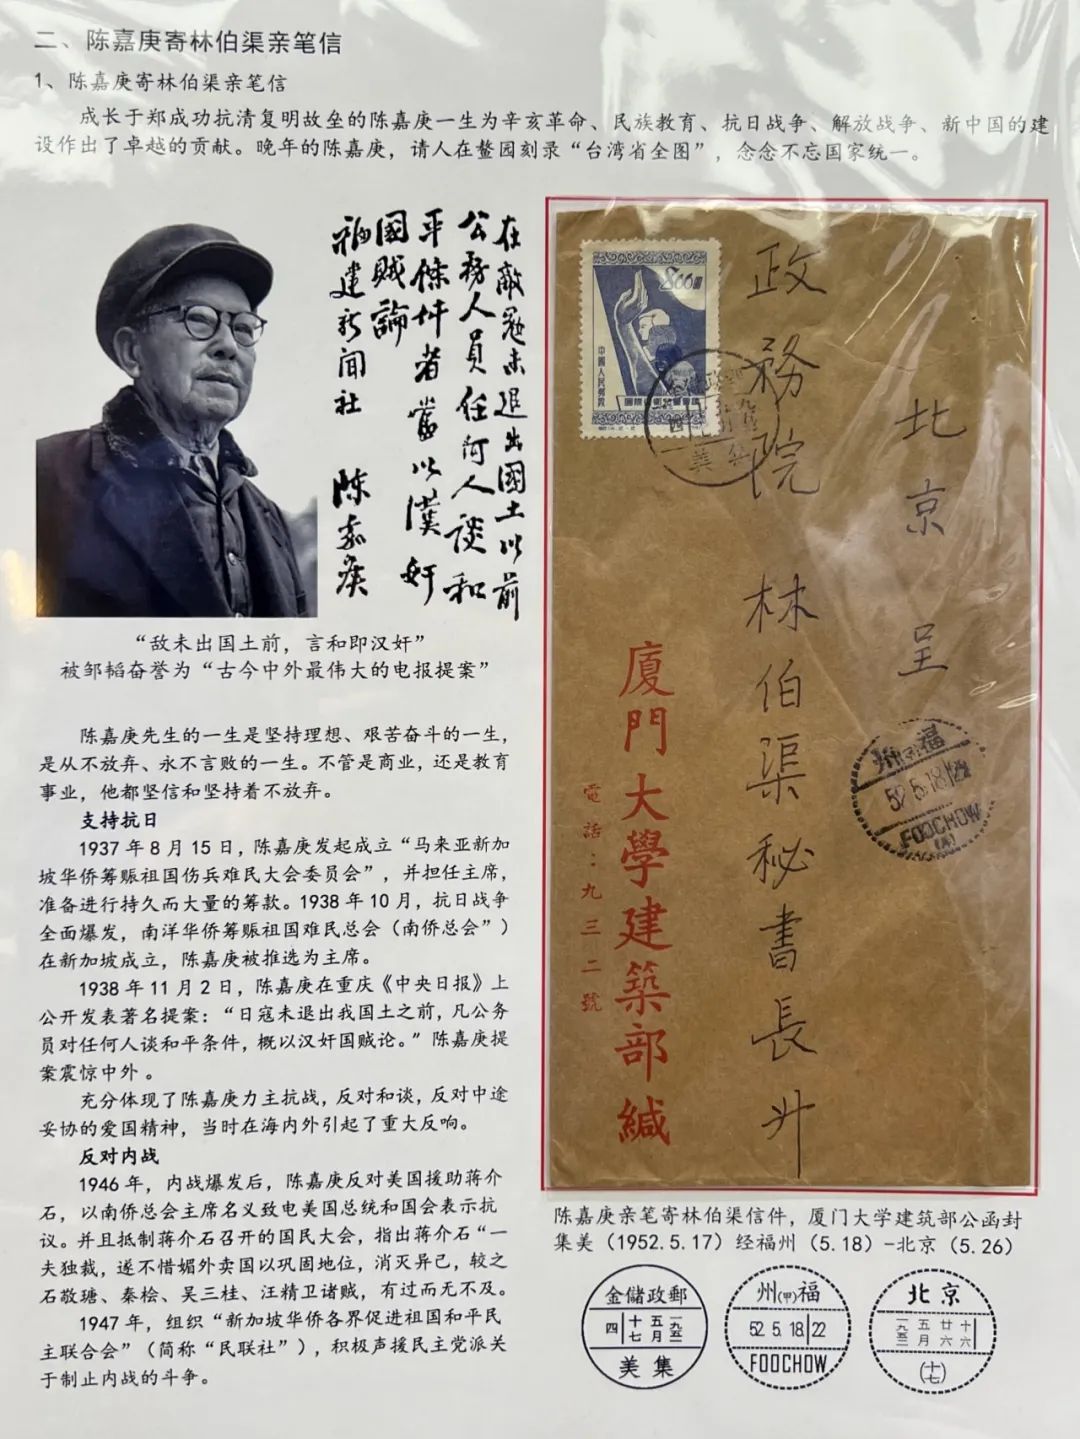 二、陈嘉庚寄林伯渠亲笔信
1、陈嘉庚寄林伯渠亲笔信
成长于郑成功抗清复明故垒的陈嘉庚一生为辛亥革命、民族教育、抗日战争、解放战争、新中国的建
设作出了卓越的贡献。晚年的陈嘉庚，请人在鳌园刻录“台湾省全图”，念念不忘国家统一。
在敵寇未退出國土以前
公務人員任何人談和
平條件者當以漢奸
國賊論
福建新闻社 陈嘉庚
“敌未出国土前，言和即汉奸”
被邹韬奋誉为“古今中外最伟大的电报提案”
陈嘉庚先生的一生是坚持理想、艰苦奋斗的一生，
是从不放弃、永不言败的一生。不管是商业，还是教育
事业，他都坚信和坚持着不放弃。
支持抗日
1937年8月15日，陈嘉庚发起成立“马来亚新加
坡华侨筹赈祖国伤兵难民大会委员会”，并担任主席，
准备进行持久而大量的筹款。1938年10月，抗日战争
全面爆发，南洋华侨筹赈祖国难民总会（南侨总会”）
在新加坡成立，陈嘉庚被推选为主席。
1938年11月2日，陈嘉庚在重庆《中央日报》上
公开发表著名提案：“日寇未退出我国土之前，凡公务
员对任何人谈和平条件，概以汉奸国贼论。”陈嘉庚提
案震惊中外。
充分体现了陈嘉庚力主抗战，反对和谈，反对中途
妥协的爱国精神，当时在海内外引起了重大反响。
反对内战
1946年，内战爆发后，陈嘉庚反对美国援助蒋介
石，以南侨总会主席名义致电美国总统和国会表示抗
议。并且抵制蒋介石召开的国民大会，指出蒋介石“一
夫独裁，遂不惜媚外卖国以巩固地位，消灭异己，较之
石敬瑭、秦桧、吴三桂、汪精卫诸贼，有过而无不及。
1947年，组织“新加坡华侨各界促进祖国和平民
主联合会”（简称“民联社”），积极声援民主党派关
于制止内战的斗争。
北京 呈
政務院 林伯渠秘書長 升
廈門大學建築部緘
電話：九三二號
800
中國人民郵政
美 集
州 福
52.5.18
FOOCHOW
陈嘉庚亲笔寄林伯渠信件，厦门大学建筑部公函封
集美（1952.5.17）经福州（5.18）-北京（5.26）
金儲政郵
四 十七 五月 一九五二
美 集
州(甲)福
52 5.18 22
FOOCHOW
北京
一九五二 五月 廿六 十六
(十七)